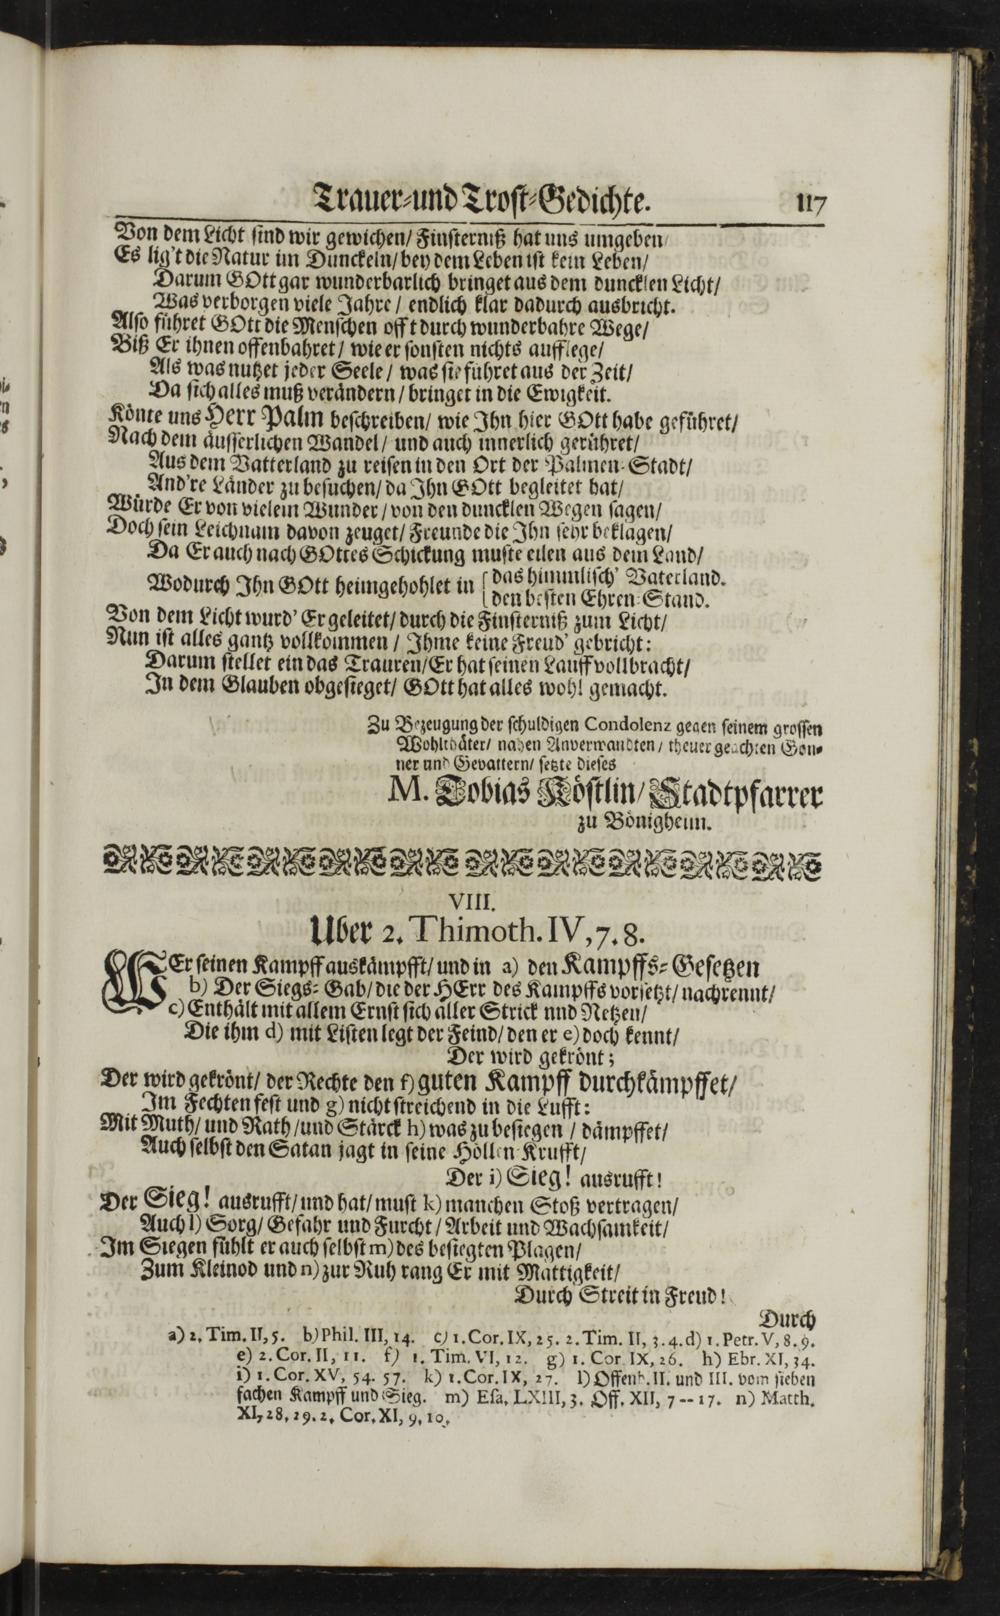 Trauer-und Trost-Gedichte. 117
Von dem Licht sind wir gewichen/ Finsterniß hat uns umgeben/
Es lig't die Natur im Dunckeln/ bey dem Leben ist kein Leben/
Darum GOtt gar wunderbarlich bringet aus dem duncklen Licht/
Was verborgen viele Jahre/ endlich klar dadurch ausbricht.
Also führet GOtt die Menschen offt durch wunderbahre Wege/
Biß Er ihnen offenbahret/ wie er sonsten nichts aufflege/
Als was nutzet jeder Seele/ was sie führet aus der Zeit/
Da sich alles muß verändern/ bringet in die Ewigkeit.
Könte uns Herr Palm beschreiben/ wie Ihn hier GOtt habe geführet/
Nach dem äusserlichen Wandel/ und auch innerlich gerühret/
Aus dem Vatterland zu reisen in den Ort der Palmen-Stadt/
And're Länder zu besuchen/ da Ihn GOtt begleitet hat/
Würde Er von vielem Wunder/ von den duncklen Wegen sagen/
Doch sein Leichnam davon zeuget/ Freunde die Ihn sehr beklagen/
Da Er auch nach GOttes Schickung muste eilen aus dem Land/
Wodurch Ihn GOtt heimgehohlet in { das himmlisch' Vaterland.
den besten Ehren-Stand.
Von dem Licht wurd' Er geleitet/ durch die Finsterniß zum Licht/
Nun ist alles gantz vollkommen/ Ihme keine Freud' gebricht:
Darum stellet ein das Trauren/ Er hat seinen Lauff vollbracht/
In dem Glauben obgesieget/ GOtt hat alles wohl gemacht.
Zu Bezeugung der schuldigen Condolenz gegen seinem grossen
Wohlthäter/ nahen Anverwandten/ theuer geachten Gön-
ner und Gevattern/ setzte dieses
M. Tobias Köstlin/ Stadtpfarrer
zu Bönigheim.
VIII.
Uber 2. Thimoth. IV, 7. 8.
WEr seinen Kampff auskämpfft/ und in a) den Kampffs-Gesetzen
b) Der Siegs-Gab/ die der HErr des Kampffs vorsetzt/ nachrennt/
c) Enthält mit allem Ernst sich aller Strick und Netzen/
Die ihm d) mit Listen legt der Feind/ den er e) doch kennt/
Der wird gekrönt;
Der wird gekrönt/ der Rechte den f) guten Kampff durchkämpffet/
Im Fechten fest und g) nicht streichend in die Lufft:
Mit Muth/ und Rath/ und Stärck h) was zu besiegen/ dämpffet/
Auch selbst den Satan jagt in seine Höllen-Krufft/
Der i) Sieg! ausrufft!
Der Sieg! ausrufft/ und hat/ must k) manchen Stoß vertragen/
Auch l) Sorg/ Gefahr und Furcht/ Arbeit und Wachsamkeit/
Im Siegen fühlt er auch selbst m) des besiegten Plagen/
Zum Kleinod und n) zur Ruh rang Er mit Mattigkeit/
Durch Streit in Freud!
Durch
a) 2. Tim. II, 5. b) Phil. III, 14. c) 1. Cor. IX, 25. 2. Tim. II, 3. 4. d) 1. Petr. V, 8. 9.
e) 2. Cor. II, 11. f) 1. Tim. VI, 12. g) 1. Cor IX, 26. h) Ebr. XI, 34.
i) 1. Cor. XV, 54. 57. k) 1. Cor. IX, 27. l) Offenb. II. und III. vom sieben
fachen Kampff und Sieg. m) Esa. LXIII, 3. Off. XII, 7--17. n) Matth.
XI, 28, 29. 2. Cor. XI, 9, 10.